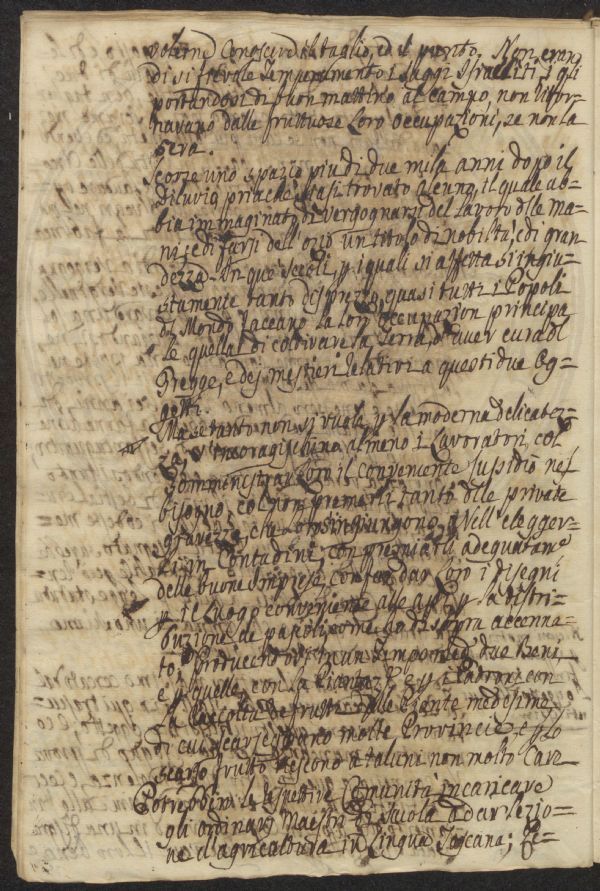 volerne conoscere il taglio, ed il punto. Non eran
di sì fievole Temperamento i saggi Israeliti, i qli
portandosi di buon mattino al campo, non ritor=
navano dalle fruttuose Loro occupazioni, se non la
sera.
Scorse uno spazio più di due mila anni dopo il
Diluvio priachè siasi trovato alcuno, il quale ab=
bia immaginato di vergognarsi del Lavoro delle ma=
ni, e di farsi dell' ozio un titolo di nobiltà, e di gran
dezza. In que' secoli, p i quali si affetta sì ingiu=
stamente tanto disprezzo, quasi tutti i Popoli
del Mondo faceano la lor occupazion principa
le quella di coltivare la Terra, d'aver cura del
Gregge, e dei mestieri relativi a questi due Og=
getti.
Ma se tanto non si vuole p la moderna delicatez=
za, s' incoragischino almeno i Lavoratori, col
somministrar Loro il conveniente sussidio nel
bisogno, col non premerli tanto delle private
gravezze, che Loro s' ingiungono, nell' elegger=
li in Contadini, con premiarli adeguatam.e
delle buone Imprese, con far dar Loro i disegni
p il Luogo conveniente alle p la distri=
buzione de' pascoli come ho di sopra accenna=
to, producendosi in un Tempo med.o due Beni,
e p quelle, con la e p i Padroni con
la Raccolta de' frutti delle Piante medesime,
di cui scarseggiano molte Provincie, e p lo
scarso frutto riescono a taluni non molto care
Potrebbero le rispettive Comunità incaricare
gli ordinarj Maestri di scuola a dar lezio=
ne d' agricoltura in Lingua Toscana; Ze=